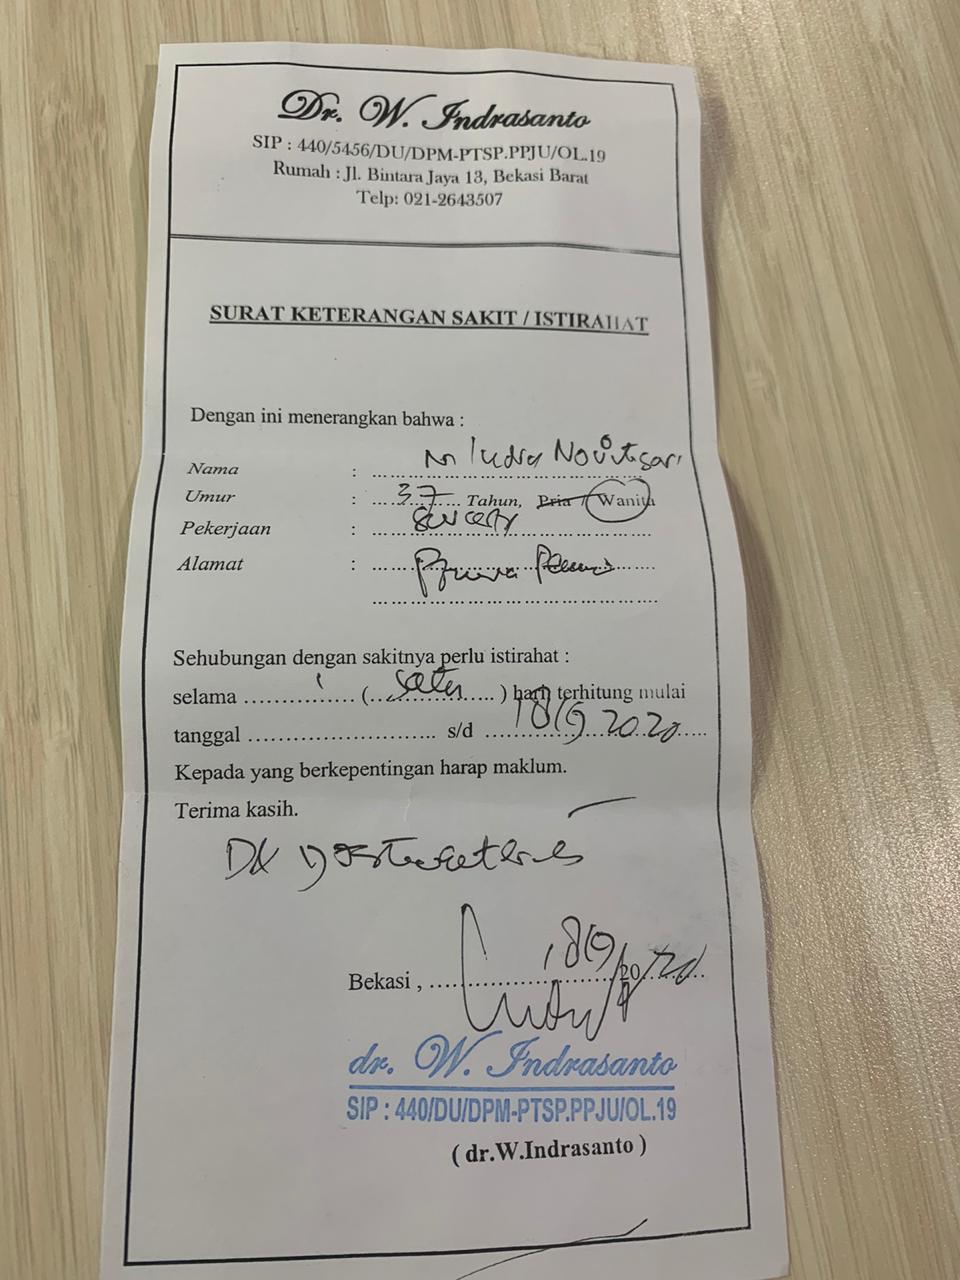 Dr. W. Indrasanto
SIP : 440/5456/DU/DPM-PTSP.PPJU/OL.19
Rumah : Jl. Bintara Jaya 13, Bekasi Barat
Telp: 021-2643507
SURAT KETERANGAN SAKIT / ISTIRAHAT
Dengan ini menerangkan bahwa :
Nama : Novitasari
Umur : ...37... Tahun, Pria / Wanita
Pekerjaan :
Alamat :
Sehubungan dengan sakitnya perlu istirahat :
selama ............... (...satu...) hari terhitung mulai
tanggal ........................... s/d 18/9 2020
Kepada yang berkepentingan harap maklum.
Terima kasih.
Dx
Bekasi , 18/9/2020
dr. W. Indrasanto
SIP : 440/DU/DPM-PTSP.PPJU/OL.19
( dr.W.Indrasanto )